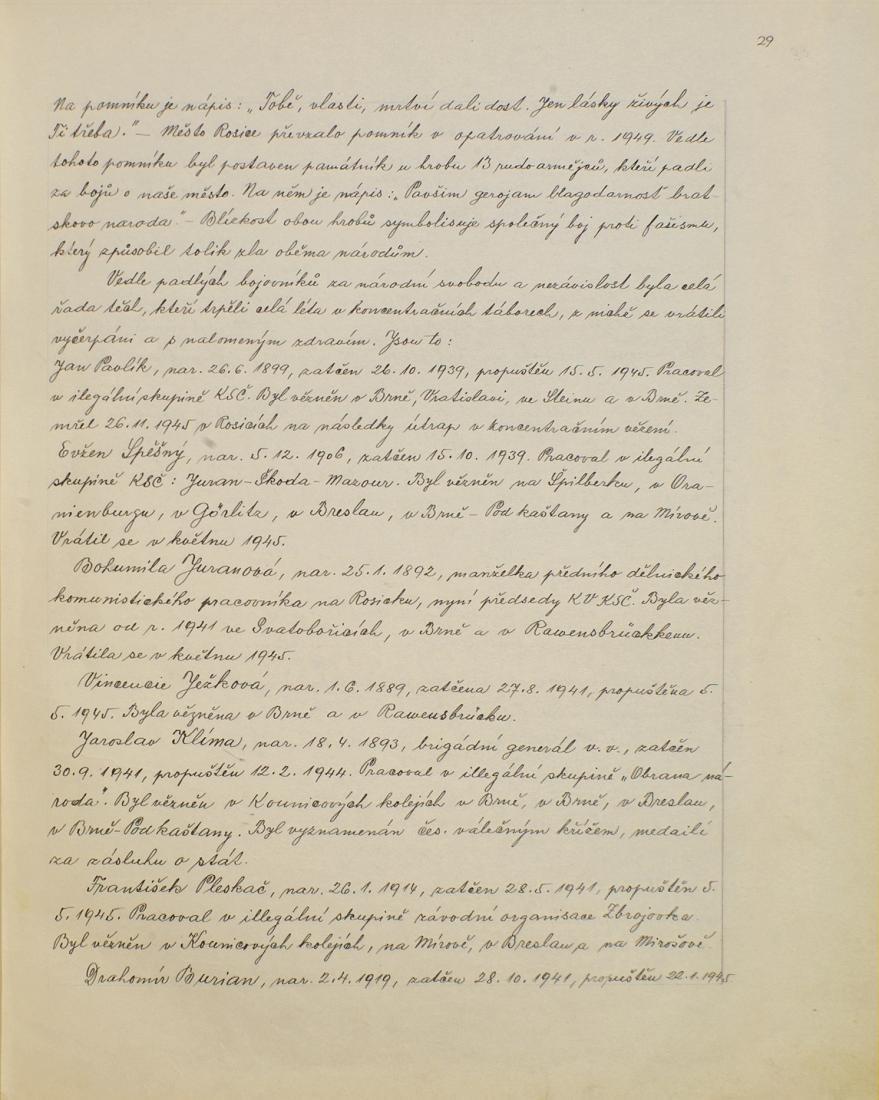 29
Na pomníku je nápis: „Tobě, vlasti, mrtví dali dost. Jen lásky živých je
Ti třeba." — Město Rosice převzalo pomník v opatrování v r. 1949. Vedle
tohoto pomníku byl postaven památník u hrobu 13 rudoarmějců, kteří padli
za bojů o naše město. Na něm je nápis: „Pavšim gerojam blagodarnost brat-
skovo naroda." — Blízkost obou hrobů symbolisuje společný boj proti fašismu,
který způsobil tolik zla oběma národům.
Vedle padlých bojovníků za národní svobodu a nezávislost byla celá
řada těch, kteří trpěli celá léta v koncentračních táborech, z nichž se vrátili
vyčerpáni a s nalomeným zdravím. Jsou to:
Jan Pavlík, nar. 26.6. 1899, zatčen 26. 10. 1939, propuštěn 15. 5. 1945. Pracoval
v ilegální skupině KSČ. Byl vězněn v Brně, Vratislavi, ve Steinu a v Brně. Ze-
mřel 26. 11. 1945 v Rosicích na následky útrap v koncentračním vězení.
Evžen Spěšný, nar. 5. 12. 1906, zatčen 15. 10. 1939. Pracoval v ilegální
skupině KSČ: Juran - Škoda - Mazour. Byl vězněn na Špilberku, v Ora-
nienburgu, v Görlitz, v Breslau, v Brně - Pod kaštany a na Mírově.
Vrátil se v květnu 1945.
Bohumila Juranová, nar. 25. 1. 1892, manželka předního dělnického
komunistického pracovníka na Rosicku, nyní předsedy KV KSČ. Byla věz-
něna od r. 1941 ve Svatobořicích, v Brně a v Rawensbrückkenu.
Vrátila se v květnu 1945.
Vincencie Ježková, nar. 1. 6. 1889, zatčena 27. 8. 1941, propuštěna 5.
5. 1945. Byla vězněna v Brně a v Rawensbrücku.
Jaroslav Klíma, nar. 18. 4. 1893, brigádní generál v. v., zatčen
30. 9. 1941, propuštěn 12. 2. 1944. Pracoval v illegální skupině „Obrana ná-
roda". Byl vězněn v Kounicových kolejích v Brně, v Brně, v Breslau,
v Brně - Pod kaštany. Byl vyznamenán čes. válečným křížem, medailí
za zásluhu o stát.
František Pleskač, nar. 26. 1. 1914, zatčen 28. 5. 1941, propuštěn 5.
5. 1945. Pracoval v illegální skupině závodní organisace Zbrojovka.
Byl vězněn v Kounicových kolejích, na Mírově, v Breslau a na Mirošově.
Drahomír Burian, nar. 2. 4. 1919, zatčen 28. 10. 1941, propuštěn 22. 1. 1945